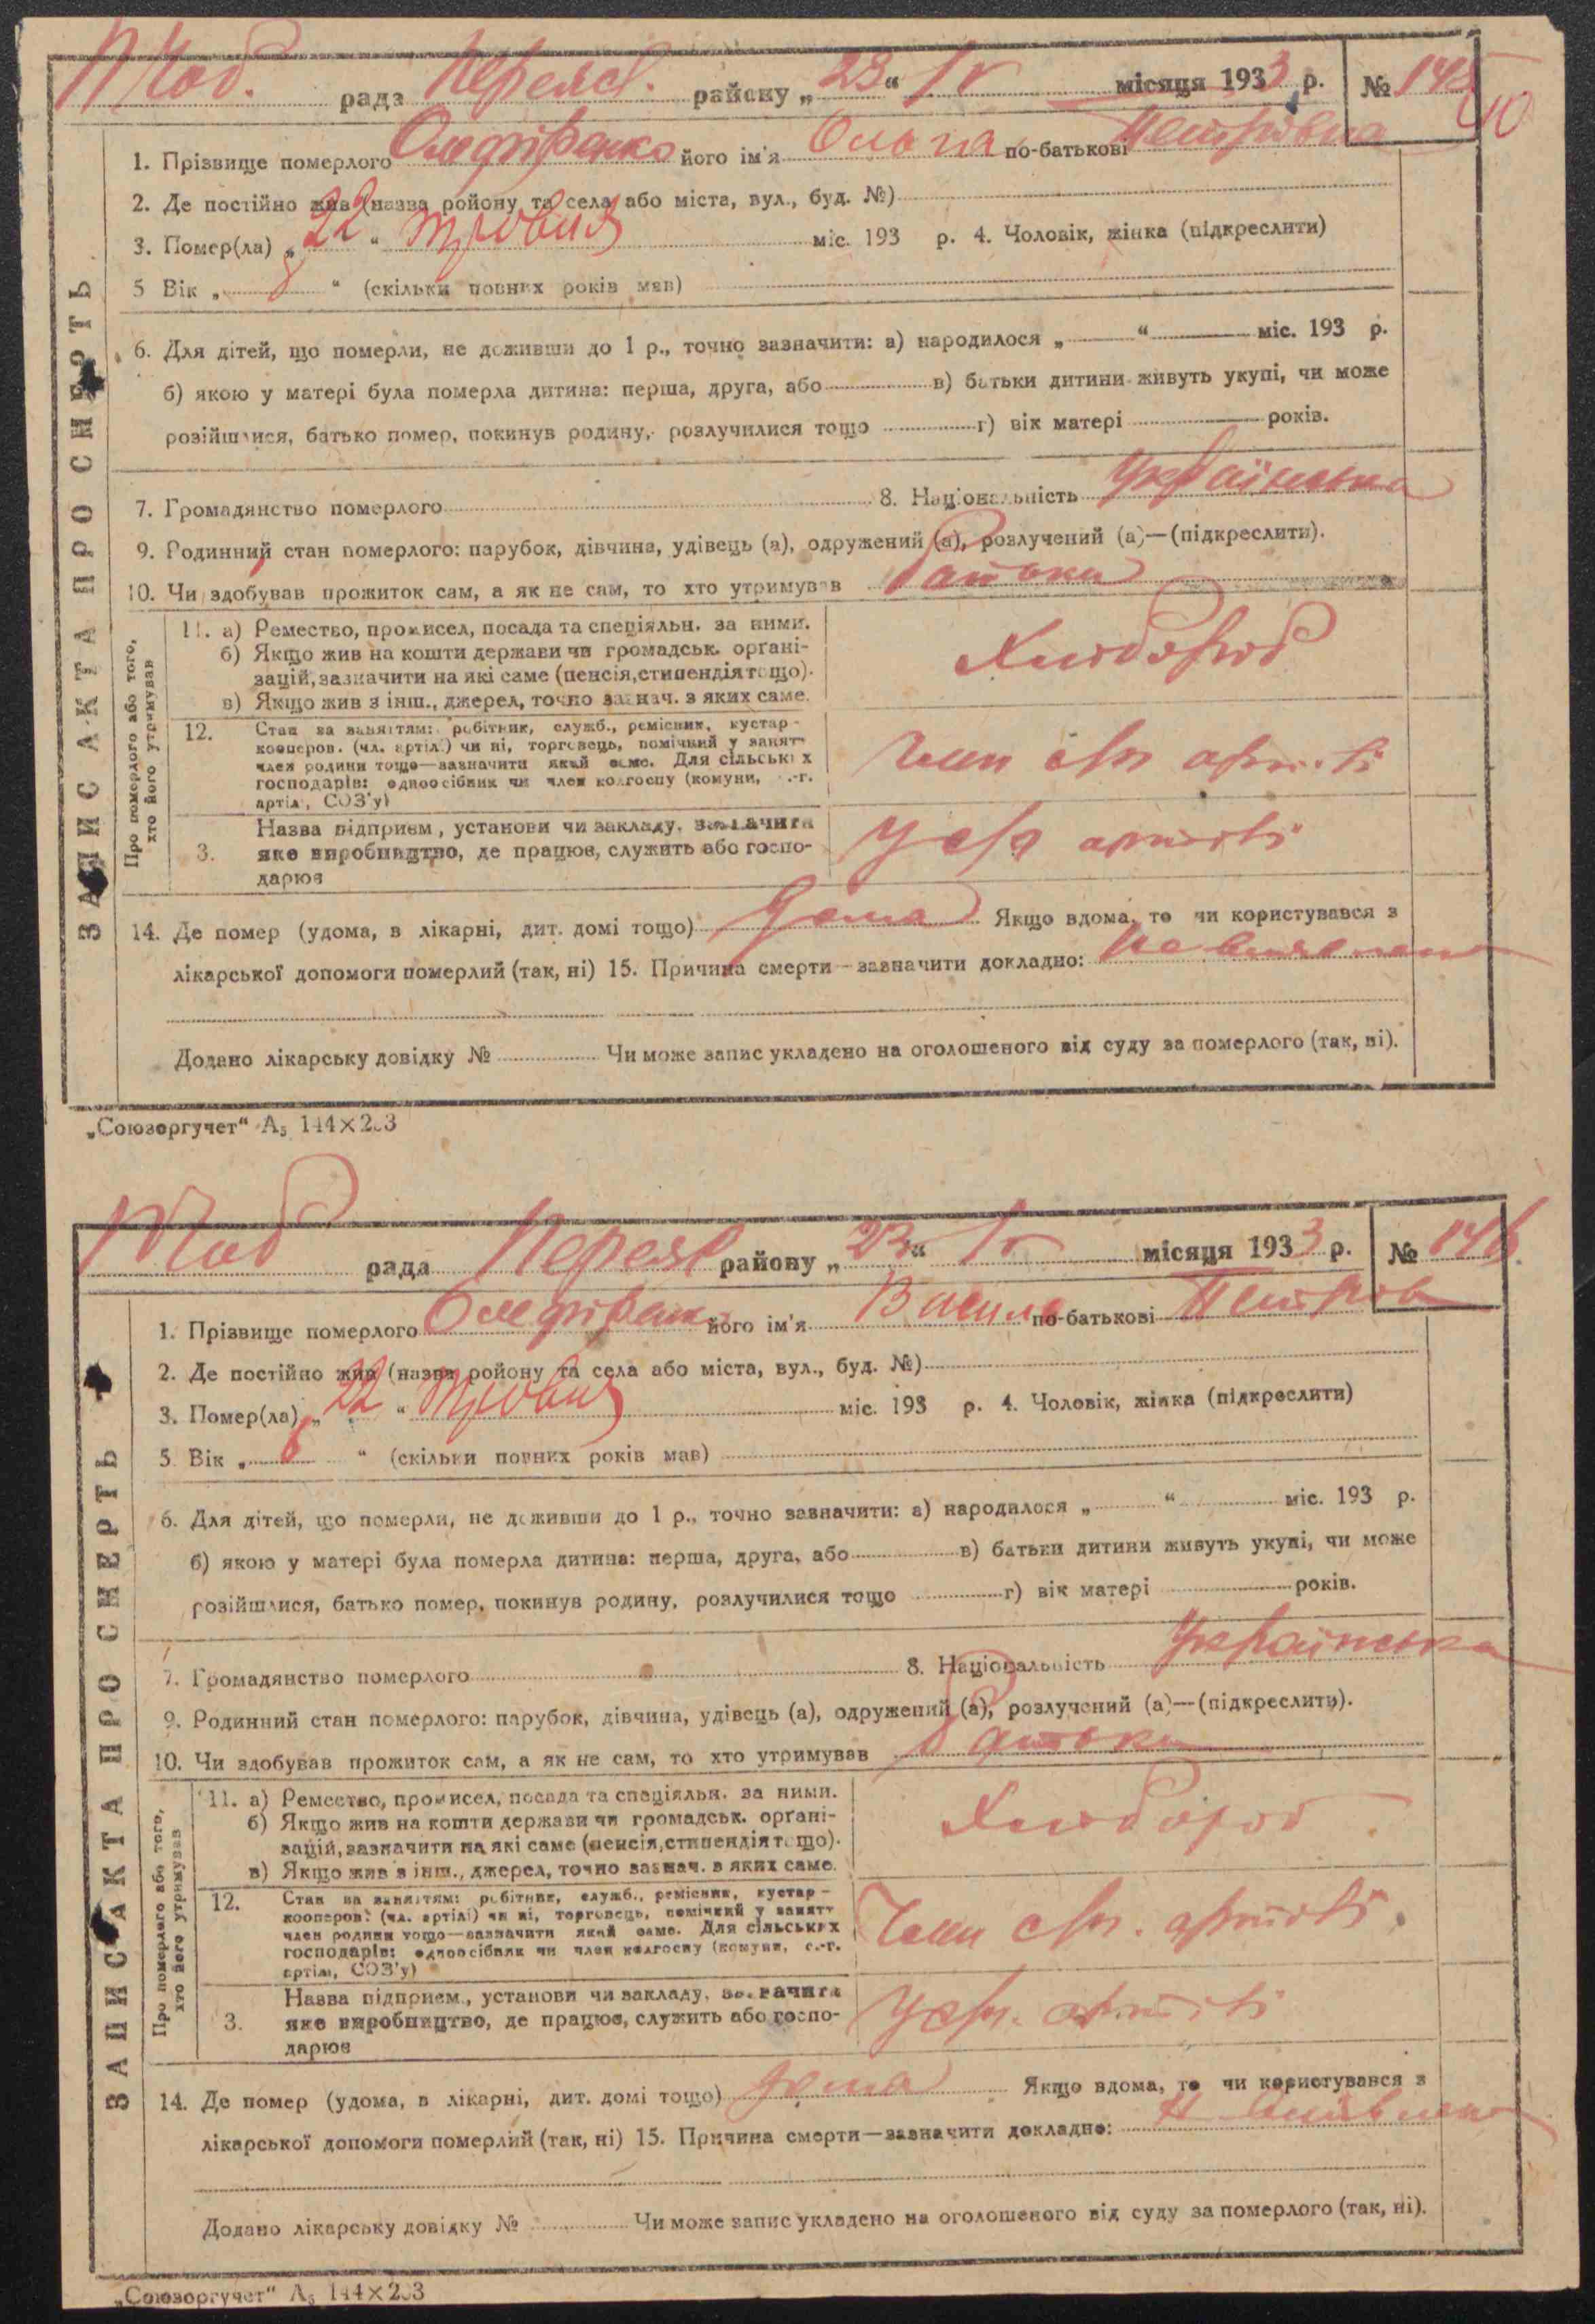 рада Переясл. району „23“ IV місяця 1933 р. № 145
40
1. Прізвище померлого його ім'я Ольга по-батькові Петрівна
2. Де постійно жив (назва ройону та села або міста, вул., буд. №)
3. Помер(ла) „22“ травня міс. 193 р. 4. Чоловік, жінка (підкреслити)
5 Вік „8“ (скільки повних років мав)
6. Для дітей, що померли, не доживши до 1 р., точно зазначити: а) народилося „ “ міс. 193 р.
б) якою у матері була померла дитина: перша, друга, або в) батьки дитини живуть укупі, чи може
розійшлися, батько помер, покинув родину, розлучилися тощо г) вік матері років.
7. Громадянство померлого 8. Національність Українська
9. Родинний стан померлого: парубок, дівчина, удівець (а), одружений (а), розлучений (а)—(підкреслити).
10. Чи здобував прожиток сам, а як не сам, то хто утримував Батьки
11. а) Ремество, промисел, посада та спеціяльн. за ними. Хлібороб
б) Якщо жив на кошти держави чи громадськ. орґані-
зацій, зазначити на які саме (пенсія, стипендія тощо).
в) Якщо жив з інш., джерел, точно зазнач. з яких саме.
12. Стан за заняттям: робітник, служб., ремісник, кустар-
кооперов. (чл. артілі) чи ні, торговець, помічний у занятт
член родини тощо—зазначити який саме. Для сільських
господарів: одноосібник чи член колгоспу (комуни, с.-г.
артіл, СОЗ'у)
Член с/г артілі
Назва підприєм, установи чи закладу, зазначити
3. яке виробництво, де працює, служить або госпо-
дарює
У с/г артілі
14. Де помер (удома, в лікарні, дит. домі тощо) Дома Якщо вдома, то чи користувався з
лікарської допомоги померлий (так, ні) 15. Причина смерти—зазначити докладно: не виявлено
Додано лікарську довідку № Чи може запис укладено на оголошеного від суду за померлого (так, ні).
ЗАПИС АКТА ПРО СМЕРТЬ
Про померлого або того,
хто його утримував
„Союзоргучет“ А₅ 144×203
рада Переясл району „23“ IV місяця 1933 р. № 146
1. Прізвище померлого його ім'я Василь по-батькові Петров
2. Де постійно жив (назва ройону та села або міста, вул., буд. №)
3. Помер(ла) „22“ травня міс. 193 р. 4. Чоловік, жінка (підкреслити)
5. Вік „6“ (скільки повних років мав)
6. Для дітей, що померли, не доживши до 1 р., точно зазначити: а) народилося „ “ міс. 193 р.
б) якою у матері була померла дитина: перша, друга, або в) батьки дитини живуть укупі, чи може
розійшлися, батько помер, покинув родину, розлучилися тощо г) вік матері років.
7. Громадянство померлого 8. Національність Українська
9. Родинний стан померлого: парубок, дівчина, удівець (а), одружений (а), розлучений (а)—(підкреслити).
10. Чи здобував прожиток сам, а як не сам, то хто утримував Батьки
11. а) Ремество, промисел, посада та спеціяльн. за ними. Хлібороб
б) Якщо жив на кошти держави чи громадськ. орґані-
зацій, зазначити на які саме (пенсія, стипендія тощо).
в) Якщо жив з інш., джерел, точно зазнач. з яких саме.
12. Стан за заняттям: робітник, служб., ремісник, кустар-
кооперов. (чл. артілі) чи ні, торговець, помічний у занятт
член родини тощо—зазначити який саме. Для сільських
господарів: одноосібник чи член колгоспу (комуни, с.-г.
артіл, СОЗ'у)
Член с/г. артілі.
Назва підприєм., установи чи закладу, зазначити
3. яке виробництво, де працює, служить або госпо-
дарює
У с/г. артілі
14. Де помер (удома, в лікарні, дит. домі тощо) Дома Якщо вдома, то чи користувався з
лікарської допомоги померлий (так, ні) 15. Причина смерти—зазначити докладно: н виявлено
Додано лікарську довідку № Чи може запис укладено на оголошеного від суду за померлого (так, ні).
ЗАПИС АКТА ПРО СМЕРТЬ
Про померлого або того,
хто його утримував
„Союзоргучет“ А₅ 144×203